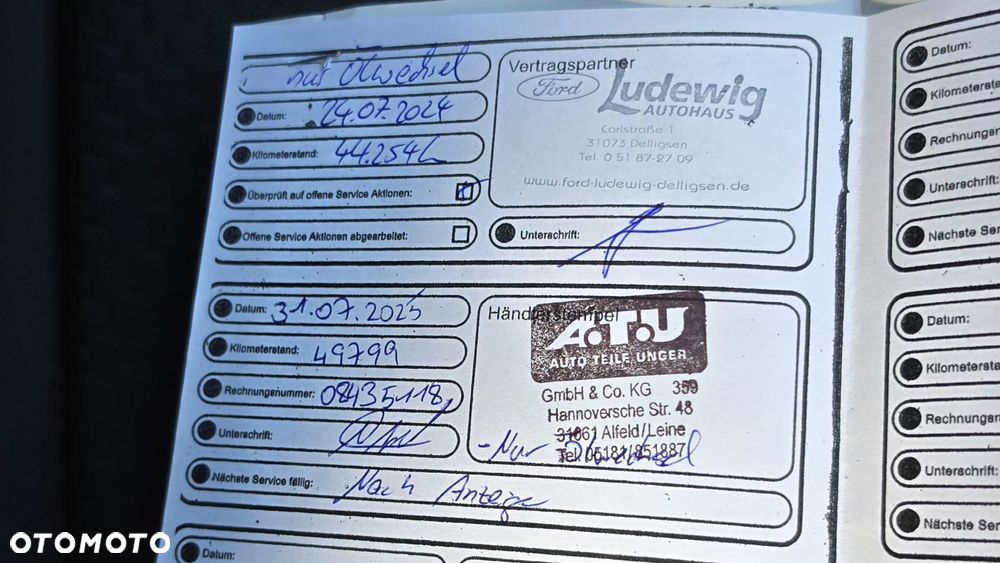 nur Ölwechsel
Datum: 24.07.2024
Kilometerstand: 44.254
Überprüft auf offene Service Aktionen:
Offene Service Aktionen abgearbeitet:
Vertragspartner
Ford Ludewig
AUTOHAUS
Carlstraße 1
31073 Delligsen
Tel. 0 51 87-27 09
www.ford-ludewig-delligsen.de
Unterschrift:
Datum: 31.07.2025
Kilometerstand: 49799
Rechnungsnummer: 08435118
Unterschrift:
Nächste Service fällig: Nach Anzeige
Händlerstempel
A.T.U
AUTO TEILE UNGER
GmbH & Co. KG 359
Hannoversche Str. 48
31061 Alfeld/Leine
Tel. 05181/851887
- Nur Ölwechsel
Datum:
Datum:
Kilometersta
Rechnung
Unterschrift:
Nächste Ser
Datum:
Kilometerst
Rechnung
Unterschrift:
Nächste Ser
OTOMOTO